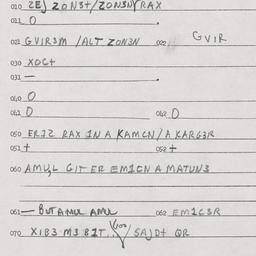 010 ZEJ ZON3+/ZON3N RAX
021 O
022 GVIR3M /ALT ZON3N 090 GVIR
030 XOC+
031 —
040 O
041 O 042 O
050 ERJZ RAX IN A KAMCN/A KARG3R
051 + 052 +
060 AMUL GIT ER EMICN A MATUN3
061 — BUTAMUL AMUL 062 EMIC3R
070 XIB3 M3 BIT. / SAJD+ QR